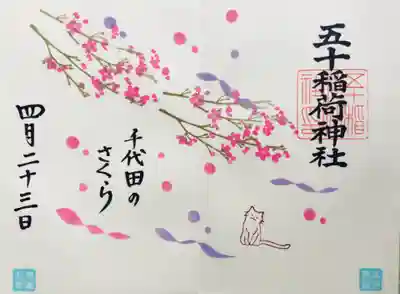 五十稲荷神社
千代田の
さくら
四月二十三日